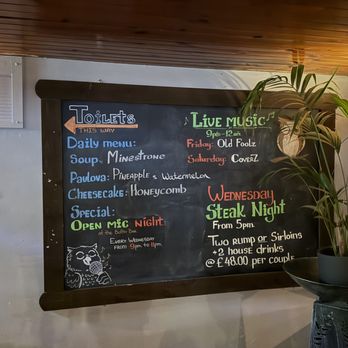 Toilets
THIS WAY
Daily menu:
Soup. Minestrone
Pavlova: Pineapple & Watermelon
Cheesecake: Honeycomb
Special:
Open Mic Night:
Every Wednesday
From 9pm to 11pm.
Live Music
9pm-12am
Friday: Old Foolz
Saturday: Coverz
Wednesday
Steak Night
From 5pm.
Two rump or Sirloins
+ 2 house drinks
@ £48.00 per couple